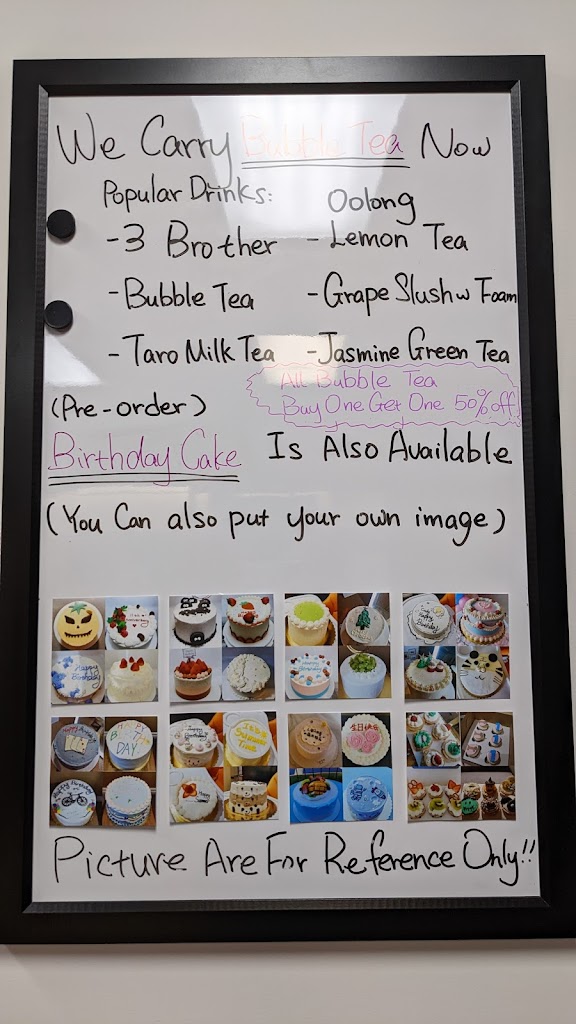 We Carry Bubble Tea Now
Popular Drinks:
- 3 Brother
- Bubble Tea
- Taro Milk Tea
Oolong
- Lemon Tea
- Grape Slush w Foam
- Jasmine Green Tea
All Bubble Tea
Buy One Get One 50% off
(Pre-order)
Birthday Cake Is Also Available
(You Can also put your own image)
Happy
Birthday
HAPPY
BIRTHDAY
DAY
生日快乐
Picture Are For Reference Only!!